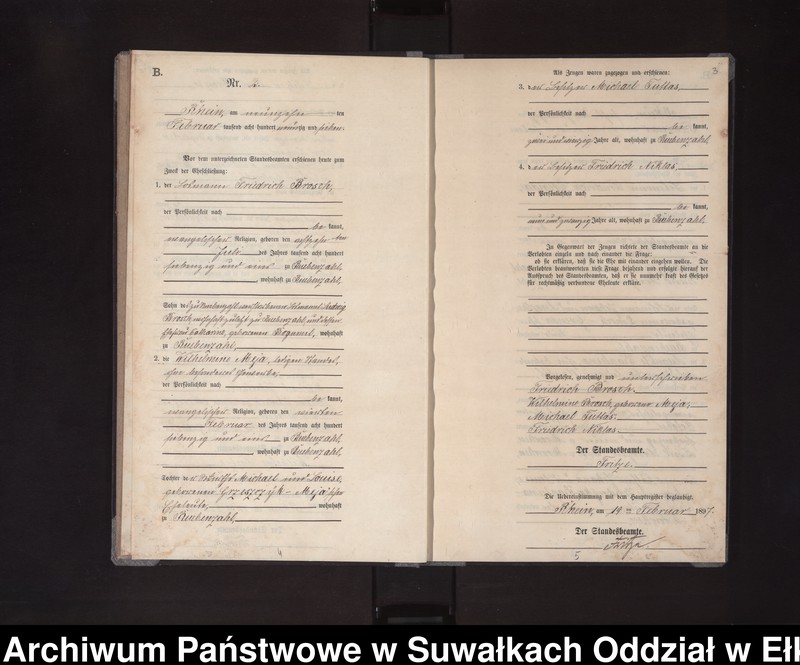 B.
Nr. 2.
Rhein, am neunzehn ten
Februar tausend acht hundert neunzig und sieben.
Vor dem unterzeichneten Standesbeamten erschienen heute zum
Zweck der Eheschließung:
1. der Losmann Friedrich Brosch,
der Persönlichkeit nach
be kannt,
evangelischer Religion, geboren den ten
Juli des Jahres tausend acht hundert
siebenzig und eins zu Rübenzahl,
, wohnhaft zu Rübenzahl,
Sohn des zu verstorbenen Losmannes Ludwig
Brosch, wohnhaft zuletzt zu Rübenzahl, und dessen
Ehefrau Catharine, geborenen Bogumil, wohnhaft
zu Rübenzahl,
2. die Wilhelmine Myja, ledigen Standes,
ohne besonderes Gewerbe,
der Persönlichkeit nach
be kannt,
evangelischer Religion, geboren den vierten
Februar des Jahres tausend acht hundert
siebenzig und eins zu Rübenzahl,
, wohnhaft zu Rübenzahl,
Tochter der Michael und Louise,
geborenen Grzeszczyk - Myja'schen
Eheleute, wohnhaft
zu Rübenzahl
4
3
Als Zeugen waren zugezogen und erschienen:
3. der Besitzer Michael Tullas,
der Persönlichkeit nach
be kannt,
zwei und zwanzig Jahre alt, wohnhaft zu Rübenzahl.
4. der Besitzer Friedrich Niklas,
der Persönlichkeit nach
be kannt,
neun und zwanzig Jahre alt, wohnhaft zu Rübenzahl.
In Gegenwart der Zeugen richtete der Standesbeamte an die
Verlobten einzeln und nach einander die Frage:
ob sie erklären, daß sie die Ehe mit einander eingehen wollen. Die
Verlobten beantworteten diese Frage bejahend und erfolgte hierauf der
Ausspruch des Standesbeamten, daß er sie nunmehr kraft des Gesetzes
für rechtmäßig verbundene Eheleute erkläre.
Vorgelesen, genehmigt und unterschrieben
Friedrich Brosch.
Wilhelmine Brosch, geborene Myja,
Michael Tullas.
Friedrich Niklas.
Der Standesbeamte.
Fritze.
Die Uebereinstimmung mit dem Hauptregister beglaubigt.
Rhein, am 19 ten Februar 1897.
Der Standesbeamte.
Fritze
5
Archiwum Państwowe w Suwałkach Oddział w Ełk